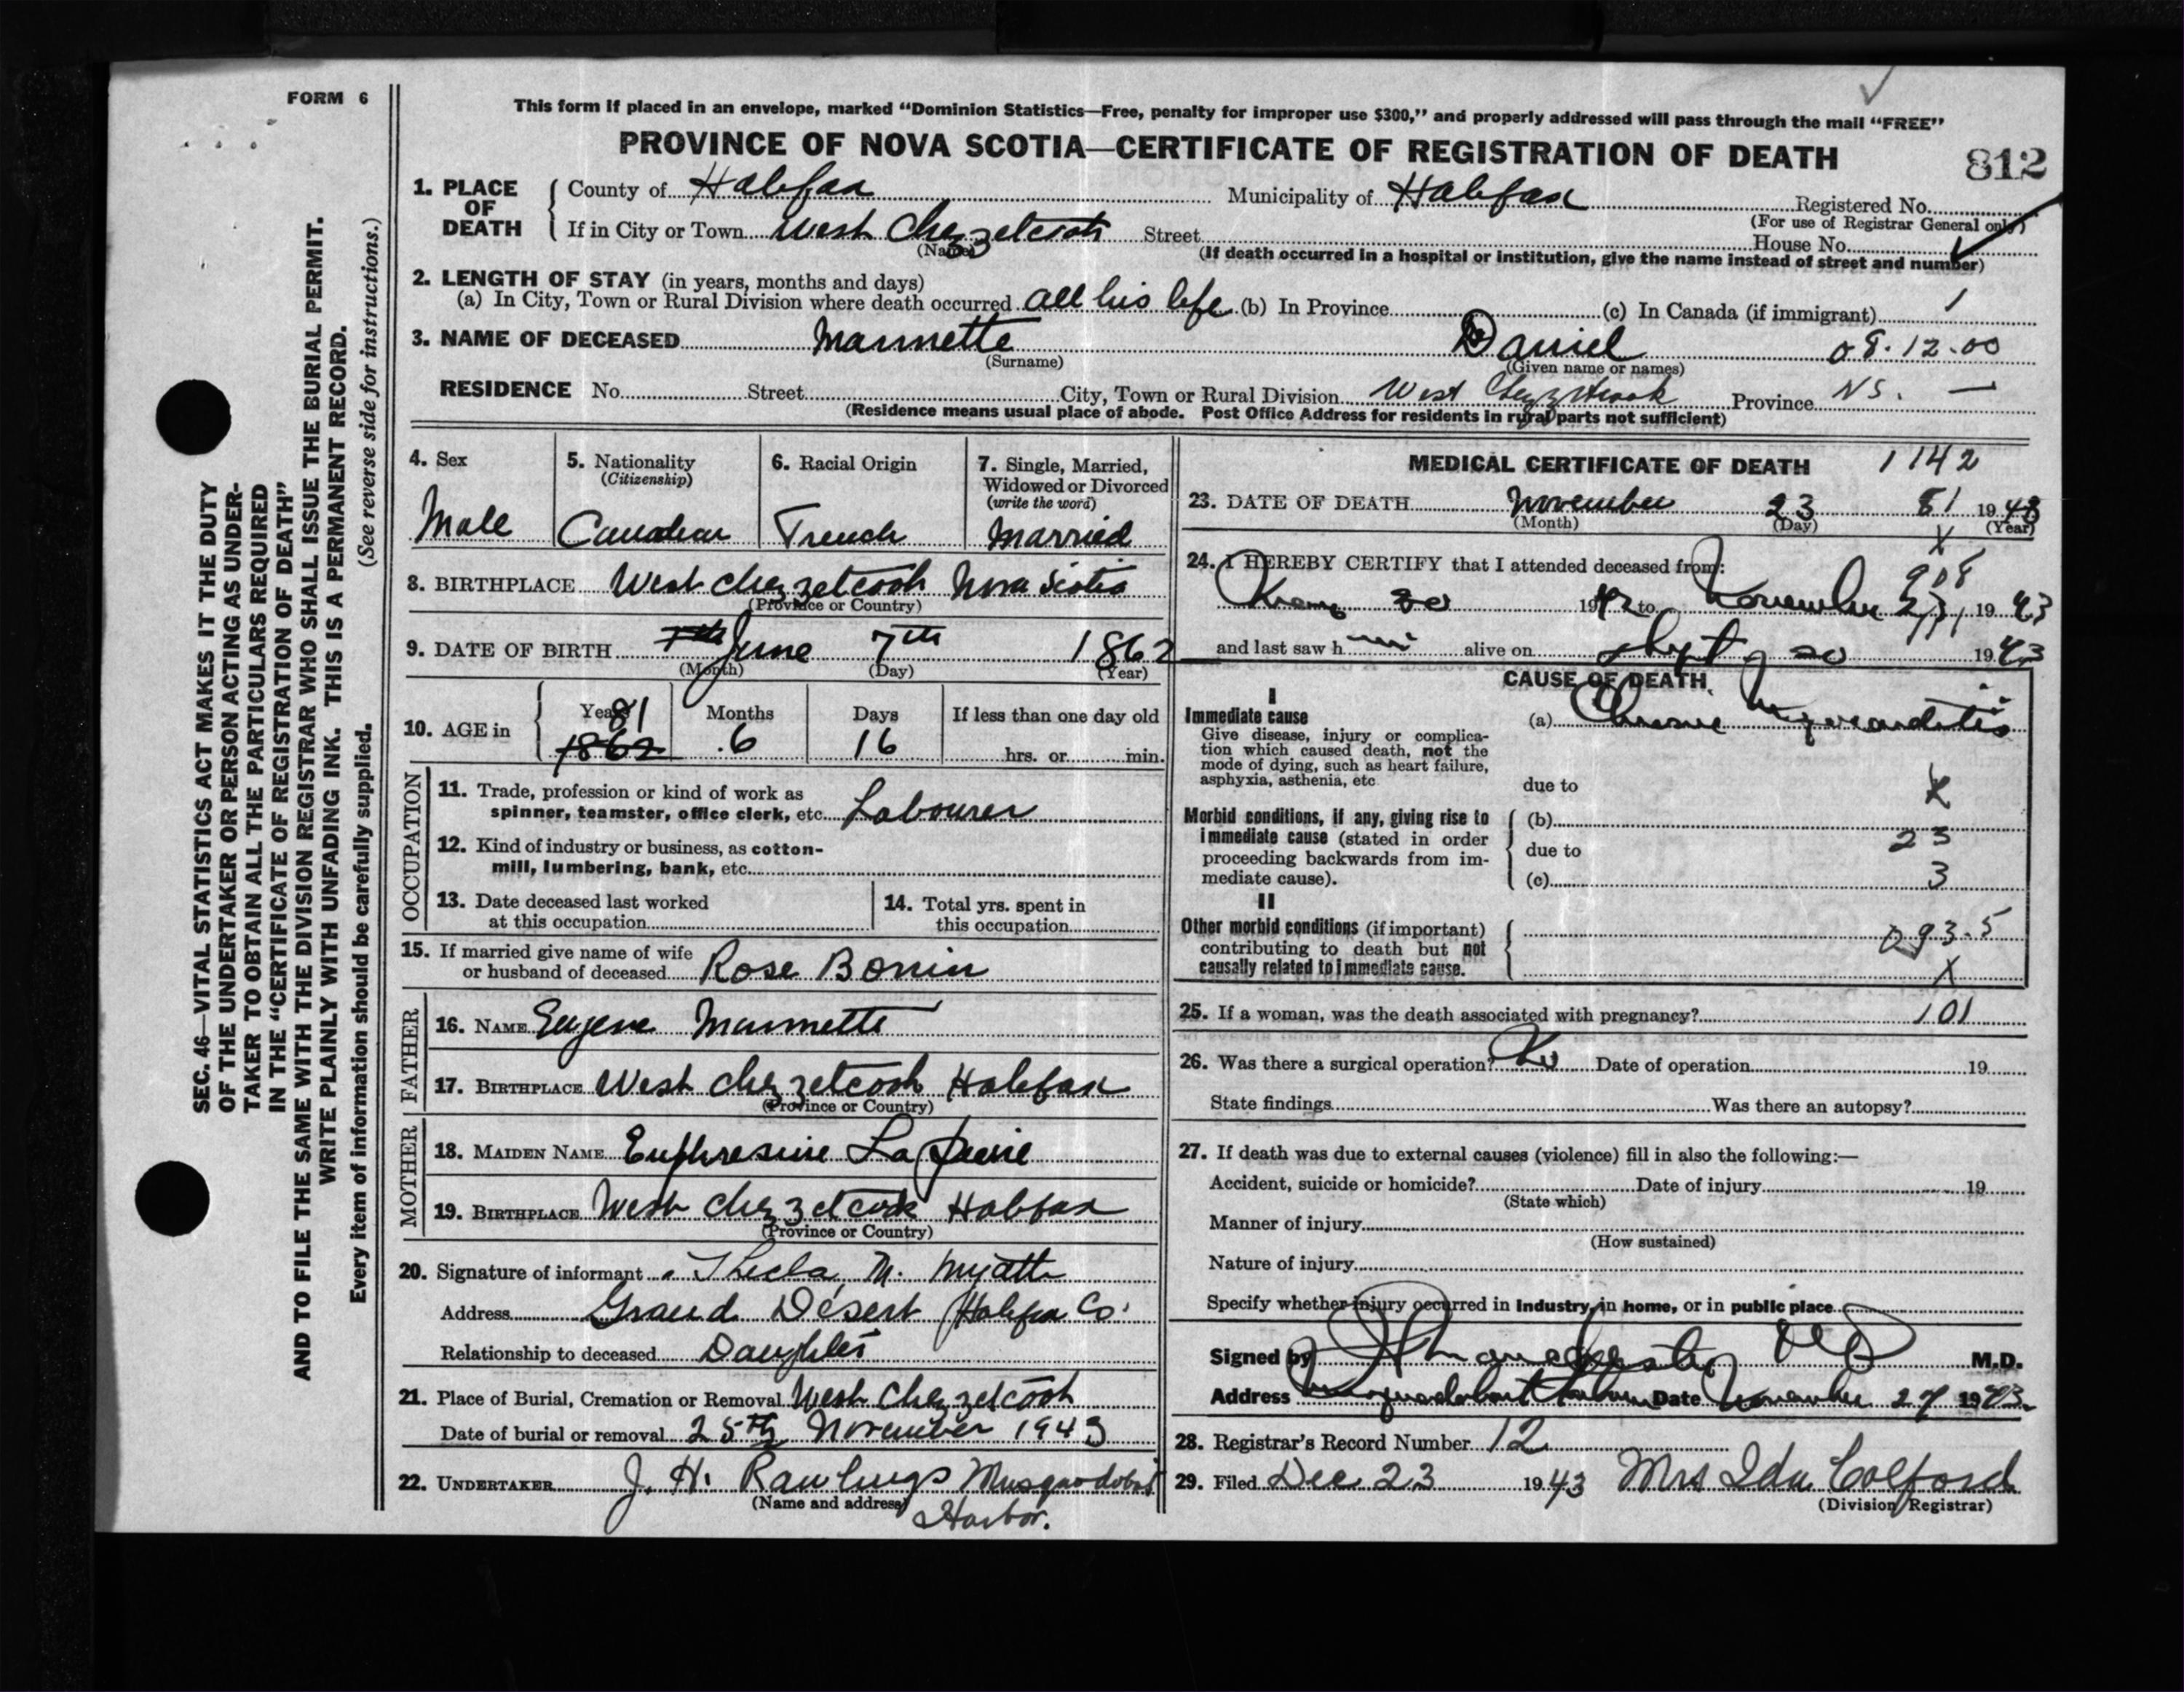 FORM 6
This form if placed in an envelope, marked "Dominion Statistics—Free, penalty for improper use $300," and properly addressed will pass through the mail "FREE"
PROVINCE OF NOVA SCOTIA—CERTIFICATE OF REGISTRATION OF DEATH
812
1. PLACE OF DEATH County of Halifax Municipality of Halifax Registered No.
(For use of Registrar General only)
If in City or Town West Chezzetcook Street House No.
(Name) (If death occurred in a hospital or institution, give the name instead of street and number)
2. LENGTH OF STAY (in years, months and days)
(a) In City, Town or Rural Division where death occurred all his life (b) In Province (c) In Canada (if immigrant) 1
3. NAME OF DECEASED Mannette Daniel 08.12.00
(Surname) (Given name or names)
RESIDENCE No. Street City, Town or Rural Division West Chezzetcook Province N.S. —
(Residence means usual place of abode. Post Office Address for residents in rural parts not sufficient)
4. Sex
Male
5. Nationality
(Citizenship)
Canadian
6. Racial Origin
French
7. Single, Married,
Widowed or Divorced
(write the word)
Married
8. BIRTHPLACE West Chezzetcook Nova Scotia
(Province or Country)
9. DATE OF BIRTH 7th June 7th 1862
(Month) (Day) (Year)
10. AGE in Years Months Days If less than one day old
81
1862 .6 16 hrs. or min.
OCCUPATION
11. Trade, profession or kind of work as
spinner, teamster, office clerk, etc. Labourer
12. Kind of industry or business, as cotton-
mill, lumbering, bank, etc.
13. Date deceased last worked
at this occupation
14. Total yrs. spent in
this occupation
15. If married give name of wife
or husband of deceased Rose Bonin
FATHER
16. NAME Eugene Mannette
17. BIRTHPLACE West Chezzetcook Halifax
(Province or Country)
MOTHER
18. MAIDEN NAME Euphresine La pierre
19. BIRTHPLACE West Chezzetcook Halifax
(Province or Country)
20. Signature of informant Thecla M. Myatte
Address Grand Désert Halifax Co.
Relationship to deceased Daughter
21. Place of Burial, Cremation or Removal West Chezzetcook
Date of burial or removal 25th November 1943
22. UNDERTAKER J. H. Rawlings Musquodoboit
(Name and address) Harbor.
MEDICAL CERTIFICATE OF DEATH 1142
23. DATE OF DEATH November 23 81 1943
(Month) (Day) (Year)
X
24. I HEREBY CERTIFY that I attended deceased from:
908
1942 to November 23, 1943
and last saw h im alive on Sept 20 1943
CAUSE OF DEATH
I
Immediate cause
Give disease, injury or complica-
tion which caused death, not the
mode of dying, such as heart failure,
asphyxia, asthenia, etc
(a) Chronic Myocarditis
due to X
Morbid conditions, if any, giving rise to
immediate cause (stated in order
proceeding backwards from im-
mediate cause).
(b)
due to 23
(c) 3
II
Other morbid conditions (if important)
contributing to death but not
causally related to immediate cause.
093.5
X
25. If a woman, was the death associated with pregnancy? 101
26. Was there a surgical operation? No Date of operation 19
State findings Was there an autopsy?
27. If death was due to external causes (violence) fill in also the following:—
Accident, suicide or homicide? Date of injury 19
(State which)
Manner of injury
(How sustained)
Nature of injury
Specify whether injury occurred in industry, in home, or in public place
Signed by MD M.D.
Address Musquodoboit Harbour Date November 27 1943
28. Registrar's Record Number 12
29. Filed Dec 23 1943 Mrs Ida Colford
(Division Registrar)
SEC. 46—VITAL STATISTICS ACT MAKES IT THE DUTY
OF THE UNDERTAKER OR PERSON ACTING AS UNDER-
TAKER TO OBTAIN ALL THE PARTICULARS REQUIRED
IN THE "CERTIFICATE OF REGISTRATION OF DEATH"
AND TO FILE THE SAME WITH THE DIVISION REGISTRAR WHO SHALL ISSUE THE BURIAL PERMIT.
WRITE PLAINLY WITH UNFADING INK. THIS IS A PERMANENT RECORD.
Every item of information should be carefully supplied. (See reverse side for instructions.)